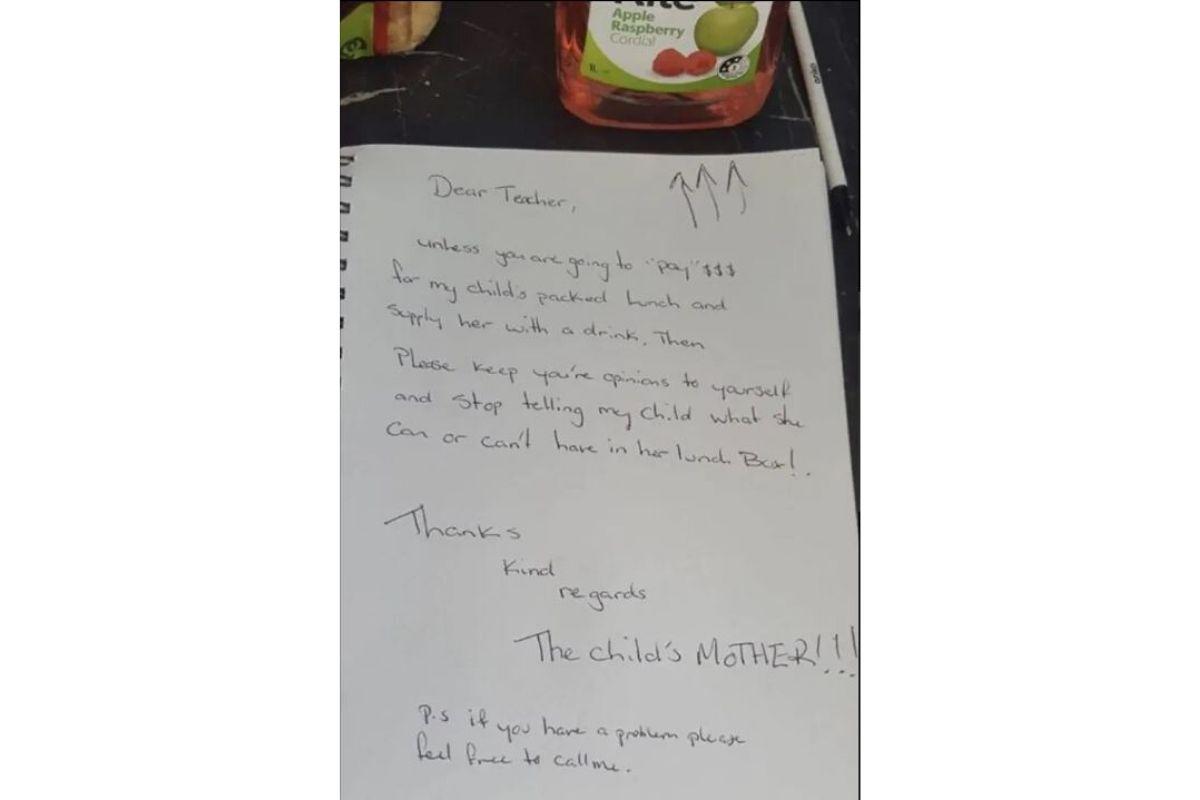 Apple
Raspberry
Cordial
1L
anko
Dear Teacher,
unless you are going to "pay" $$$
for my child's packed lunch and
supply her with a drink. Then
Please keep you're opinions to yourself
and stop telling my child what she
can or can't have in her lunch Box!.
Thanks
Kind
regards
The child's MOTHER!!!
P.s if you have a problem please
feel free to call me.